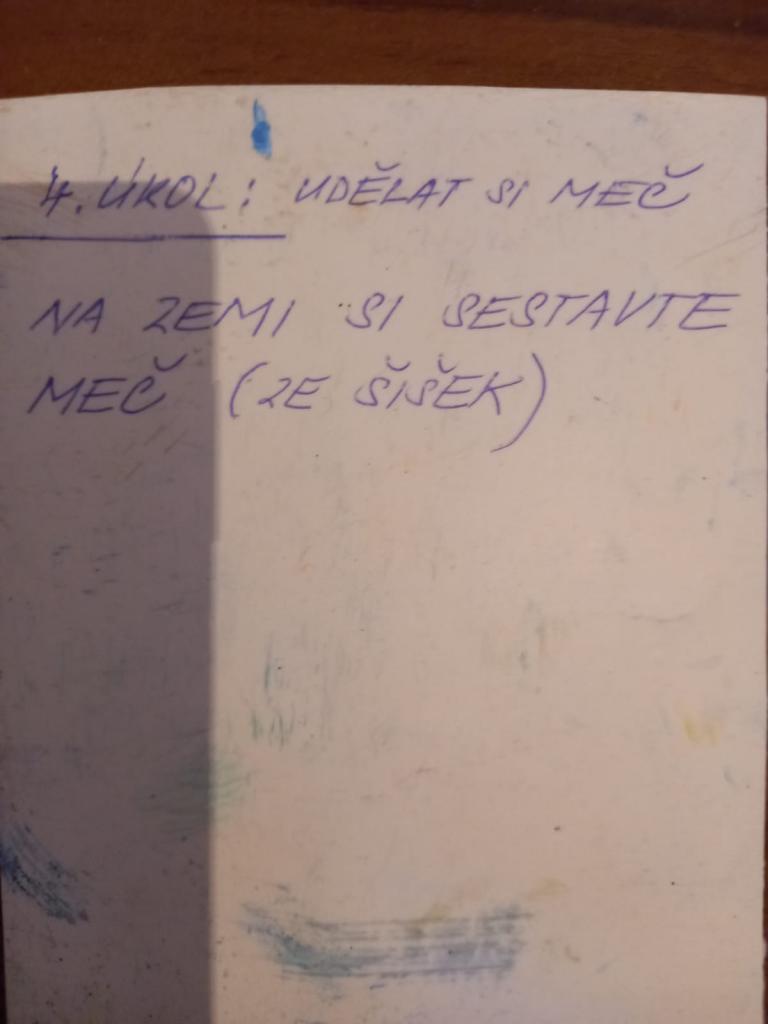 4. ÚKOL: UDĚLAT SI MEČ
NA ZEMI SI SESTAVTE
MEČ (ZE ŠIŠEK)